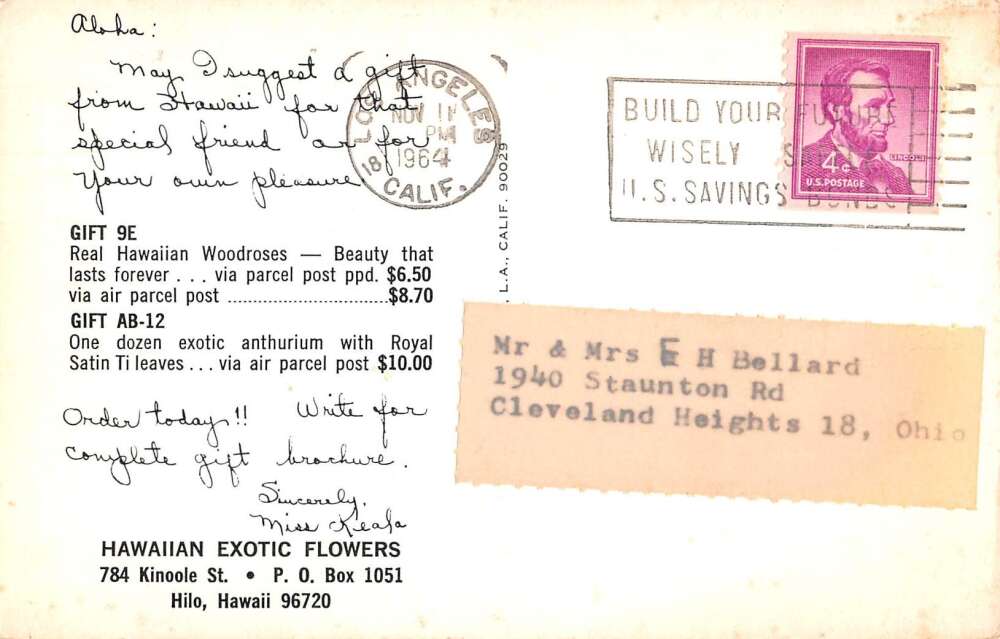 Aloha:
May I suggest a gift
from Hawaii for that
special friend or for
your own pleasure
GIFT 9E
Real Hawaiian Woodroses — Beauty that
lasts forever . . . via parcel post ppd. $6.50
via air parcel post ............................$8.70
GIFT AB-12
One dozen exotic anthurium with Royal
Satin Ti leaves . . . via air parcel post $10.00
Order today!! Write for
complete gift brochure.
Sincerely,
Miss Keala
HAWAIIAN EXOTIC FLOWERS
784 Kinoole St. • P. O. Box 1051
Hilo, Hawaii 96720
LOS ANGELES
NOV 11
PM
18 1964
CALIF.
L.A., CALIF. 90029
BUILD YOUR FUTURE
WISELY
U.S. SAVINGS BONDS
LINCOLN
4¢
U.S. POSTAGE
Mr & Mrs E H Bellard
1940 Staunton Rd
Cleveland Heights 18, Ohio